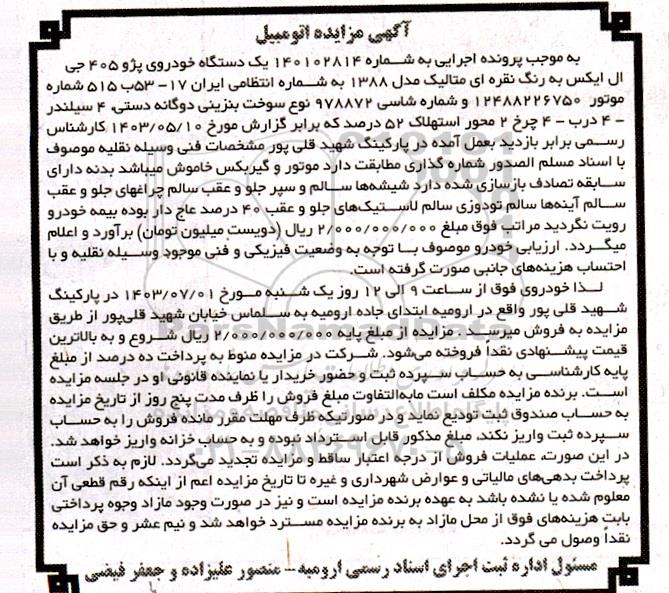 آگهی مزایده اتومبیل
به موجب پرونده اجرایی به شماره ۱۴۰۱۰۲۸۱۴ یک دستگاه خودروی پژو ۴۰۵ جی
ال ایکس به رنگ نقره ای متالیک مدل ۱۳۸۸ به شماره انتظامی ایران ۱۷- ۵۳ب ۵۱۵ شماره
موتور ۱۲۴۸۸۲۲۶۷۵۰ و شماره شاسی ۹۷۸۸۷۲ نوع سوخت بنزینی دوگانه دستی، ۴ سیلندر
- ۴ درب - ۴ چرخ ۲ محور استهلاک ۵۲ درصد که برابر گزارش مورخ ۱۴۰۳/۰۵/۱۰ کارشناس
رسمی برابر بازدید بعمل آمده در پارکینگ شهید قلی پور مشخصات فنی وسیله نقلیه موصوف
با اسناد مسلم الصدور شماره گذاری مطابقت دارد موتور و گیربکس خاموش میباشد بدنه دارای
سابقه تصادف بازسازی شده دارد شیشه‌ها سالم و سپر جلو و عقب سالم چراغهای جلو و عقب
سالم آینه‌ها سالم تودوزی سالم لاستیک‌های جلو و عقب ۴۰ درصد عاج دار بوده بیمه خودرو
رویت نگردید مراتب فوق مبلغ ۲/۰۰۰/۰۰۰/۰۰۰ ریال (دویست میلیون تومان) برآورد و اعلام
میگردد. ارزیابی خودرو موصوف با توجه به وضعیت فیزیکی و فنی موجود وسیله نقلیه و با
احتساب هزینه‌های جانبی صورت گرفته است.
لذا خودروی فوق از ساعت ۹ الی ۱۲ روز یک شنبه مورخ ۱۴۰۳/۰۷/۰۱ در پارکینگ
شهید قلی پور واقع در ارومیه ابتدای جاده ارومیه به سلماس خیابان شهید قلی‌پور از طریق
مزایده به فروش میرسد. مزایده از مبلغ پایه ۲/۰۰۰/۰۰۰/۰۰۰ ریال شروع و به بالاترین
قیمت پیشنهادی نقداً فروخته می‌شود. شرکت در مزایده منوط به پرداخت ده درصد از مبلغ
پایه کارشناسی به حساب سپرده ثبت و حضور خریدار یا نماینده قانونی او در جلسه مزایده
است. برنده مزایده مکلف است مابه‌التفاوت مبلغ فروش را ظرف مدت پنج روز از تاریخ مزایده
به حساب صندوق ثبت تودیع نماید و در صورتیکه ظرف مهلت مقرر مانده فروش را به حساب
سپرده ثبت واریز نکند، مبلغ مذکور قابل استرداد نبوده و به حساب خزانه واریز خواهد شد.
در این صورت، عملیات فروش از درجه اعتبار ساقط و مزایده تجدید می‌گردد. لازم به ذکر است
پرداخت بدهی‌های مالیاتی و عوارض شهرداری و غیره تا تاریخ مزایده اعم از اینکه رقم قطعی آن
معلوم شده یا نشده باشد به عهده برنده مزایده است و نیز در صورت وجود مازاد وجوه پرداختی
بابت هزینه‌های فوق از محل مازاد به برنده مزایده مسترد خواهد شد و نیم عشر و حق مزایده
نقداً وصول می گردد.
مسئول اداره ثبت اجرای اسناد رسمی ارومیه - منصور علیزاده و جعفر فیضی